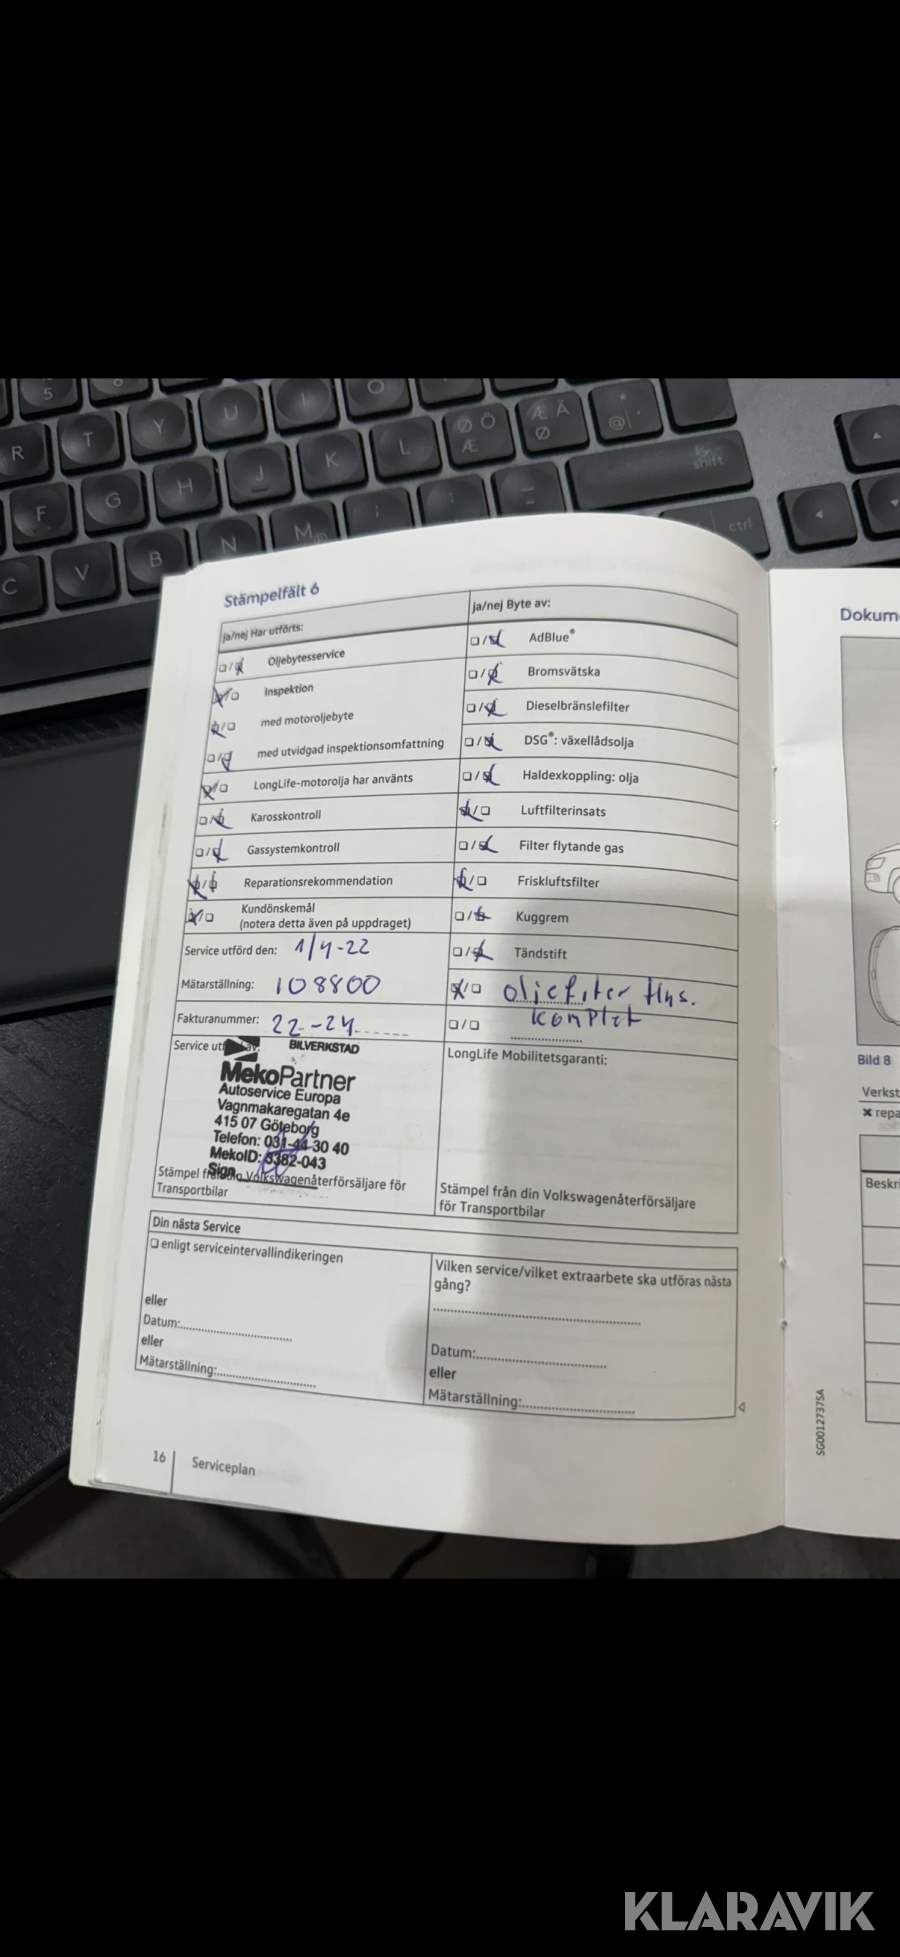 5
R T Y U I O
F G H J K L Ø Ö Æ Æ Ä Ø * @ '
shift
C V B N M ; :
ctrl
Stämpelfält 6
ja/nej Har utförts:
ja/nej Byte av:
Oljebytesservice
AdBlue®
Inspektion
Bromsvätska
med motoroljebyte
Dieselbränslefilter
med utvidgad inspektionsomfattning
DSG®: växellådsolja
LongLife-motorolja har använts
Haldexkoppling: olja
Karosskontroll
Luftfilterinsats
Gassystemkontroll
Filter flytande gas
Reparationsrekommendation
Friskluftsfilter
Kundönskemål
(notera detta även på uppdraget)
Kuggrem
Service utförd den: 1/4-22
Tändstift
Mätarställning: 108800
oljefilter hus.
komplet
Fakturanummer: 22-24
Service utförd av:
BILVERKSTAD
MekoPartner
Autoservice Europa
Vagnmakaregatan 4e
415 07 Göteborg
Telefon: 031-44 30 40
MekoID: 3382-043
Sign.
Stämpel från din Volkswagenåterförsäljare för
Transportbilar
LongLife Mobilitetsgaranti:
Stämpel från din Volkswagenåterförsäljare
för Transportbilar
Din nästa Service
enligt serviceintervallindikeringen
eller
Datum:
eller
Mätarställning:
Vilken service/vilket extraarbete ska utföras nästa
gång?
Datum:
eller
Mätarställning:
16 Serviceplan
Dokum
Bild 8
Verkst
✖ repa
Beskri
SG0012737SA
KLARAVIK